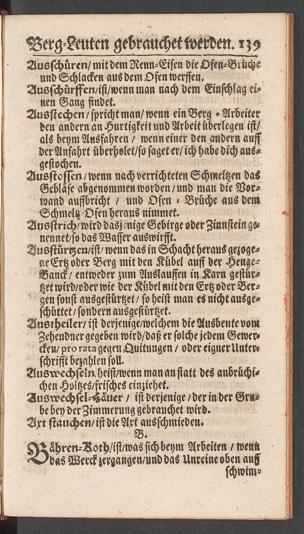 Berg-Leuten gebrauchet werden. 139
Ausschüren / mit dem Renn-Eisen die Ofen-Brüche
und Schlacken aus dem Ofen werffen.
Ausschürffen / ist / wenn man nach dem Einschlag ei-
nen Gang findet.
Ausstechen / spricht man / wenn ein Berg-Arbeiter
den andern an Hurtigkeit und Arbeit überlegen ist /
als beym Ausfahren / wenn einer den andern auff
der Ausfahrt überholet / so saget er / ich habe dich aus-
gestochen.
Ausstossen / wenn nach verrichteten Schmeltzen das
Gebläse abgenommen worden / und man die Vor-
wand auffbricht / und Ofen-Brüche aus dem
Schmeltz-Ofen heraus nimmet.
Ausstrich / wird dasjenige Gebirge oder Zinnstein ge-
nennet / so das Wasser auswirfft.
Ausstürtzen / ist / wenn das in Schacht heraus gezoge-
ne Ertz oder Berg mit den Kübel auff der Henge-
Banck / entweder zum Auslauffen in Karn gestür-
tzet wird / oder wie der Kübel mit den Ertz oder Ber-
gen sonst ausgestürtzet / so heist man es nicht ausge-
schüttet / sondern ausgestürtzet.
Austheiler / ist derjenige / welchem die Ausbeute vom
Zehendner gegeben wird / daß er solche jedem Gewer-
cken / pro rata gegen Quitungen / oder eigner Unter-
schrifft bezahlen soll.
Auswechseln heist / wenn man an statt des anbrüchi-
chen Holtzes / frisches einziehet.
Auswechsel-Häuer / ist derjenige / der in der Gru-
be bey der Zimmerung gebrauchet wird.
Axt stauchen / ist die Axt ausschmieden.
B.
Bähren-Koth / ist / was sich beym Arbeiten / wenn
das Werck zergangen / und das Unreine oben auff
schwim-